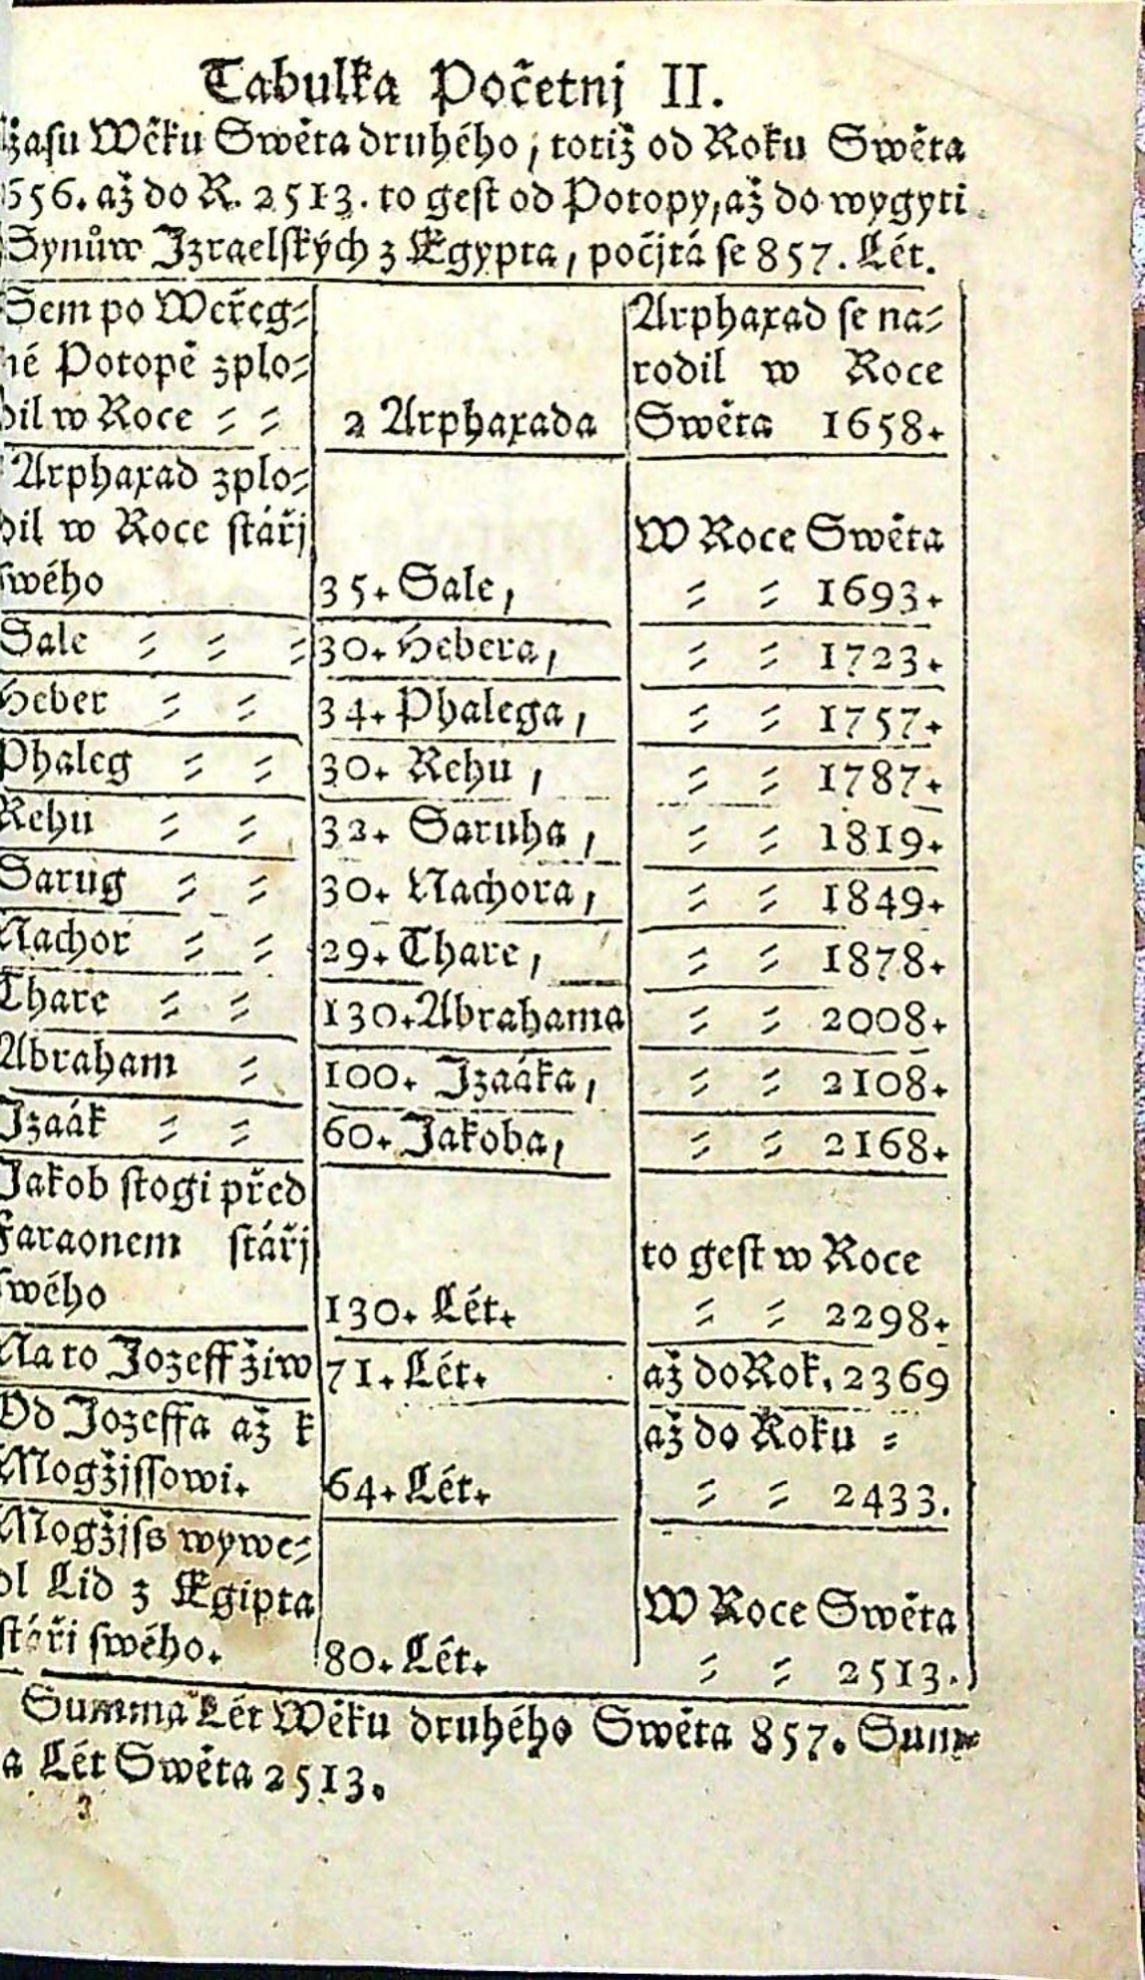 Tabulka Početnj II.
žasu Wěku Swěta druhého, totiž od Roku Swěta
656. až do R. 2513. to gest od Potopy, až do wygyti
Synůw Izraelských z Egypta, počjtá se 857. Lét.
Sem po Weřeg-
né Potopě zplo-
dil w Roce - - 2 Arphaxada
Arphaxad se na-
rodil w Roce
Swěta 1658.
Arphaxad zplo-
dil w Roce stářj
swého 35. Sale,
W Roce Swěta
- - 1693.
Sale - - - 30. Hebera, - - 1723.
Heber - - 34. Phalega, - - 1757.
Phaleg - - 30. Rehu, - - 1787.
Rehu - - 32. Saruha, - - 1819.
Sarug - - 30. Nachora, - - 1849.
Nachor - - 29. Thare, - - 1878.
Thare - - 130. Abrahama - - 2008.
Abraham - 100. Izaáka, - - 2108.
Izaák - - 60. Jakoba, - - 2168.
Jakob stogi před
Faraonem stářj
swého 130. Lét.
to gest w Roce
- - 2298.
Na to Jozeff žiw 71. Lét. až do Rok. 2369
Od Jozeffa až k
Mogžjssowi. 64. Lét.
až do Roku -
- - 2433.
Mogžjss wywe-
dl Lid z Egipta
stáři swého. 80. Lét.
W Roce Swěta
- - 2513.
Summa Lét Wěku druhého Swěta 857. Sum-
a Lét Swěta 2513.
3